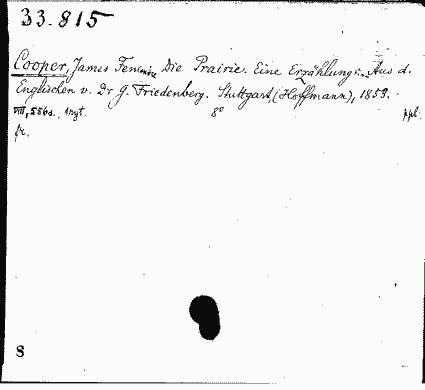 33.815
Cooper, James Fenimore Die Prairie. Eine Erzählung. Aus d.
Englischen v. Dr G. Friedenberg. Stuttgart, (Hoffmann), 1853.
VIII, 556 s., 1 nyt. 8° ppl.
fr.
8